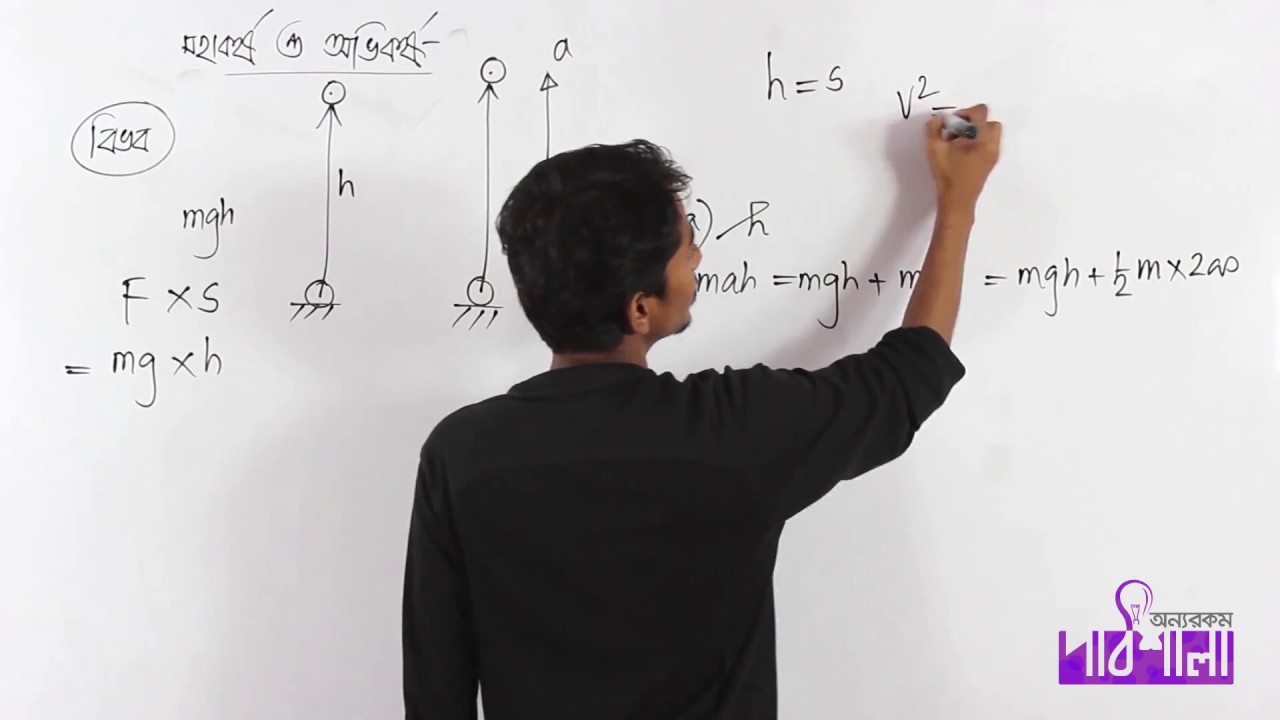 মহাকর্ষ ও অভিকর্ষ-
বিভব
a
h = s
v² =
h
mgh
a) h
F × s
mah = mgh + m = mgh + ½ m × 2as
= mg × h
অন্যরকম
পাঠশালা